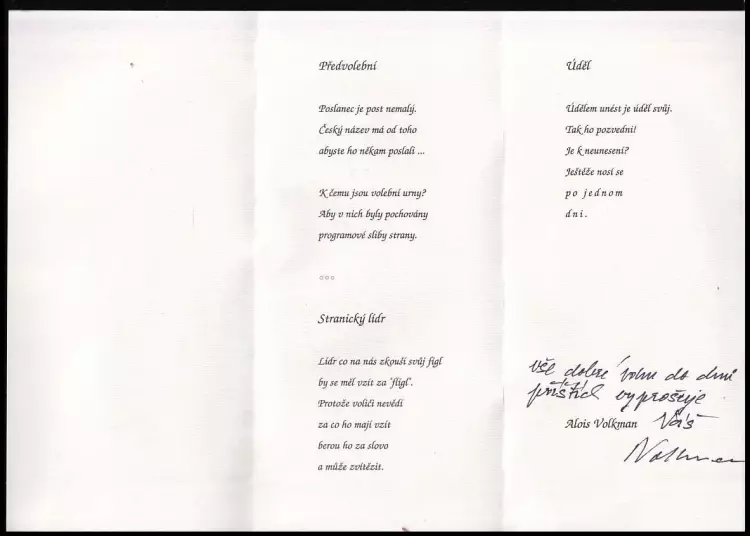 Předvolební
Poslanec je post nemalý.
Český název má od toho
abyste ho někam poslali ...
K čemu jsou volební urny?
Aby v nich byly pochovány
programové sliby strany.
○○○
Stranický lídr
Lídr co na nás zkouší svůj fígl
by se měl vzít za 'flígl'.
Protože voliči nevědí
za co ho mají vzít
berou ho za slovo
a může zvítězit.
Úděl
Údělem unést je úděl svůj.
Tak ho pozvedni!
Je k neunesení?
Ještěže nosí se
po jednom
dni.
vše dobré do dnů
příštích vyprošuje
Alois Volkman Váš
Volkman